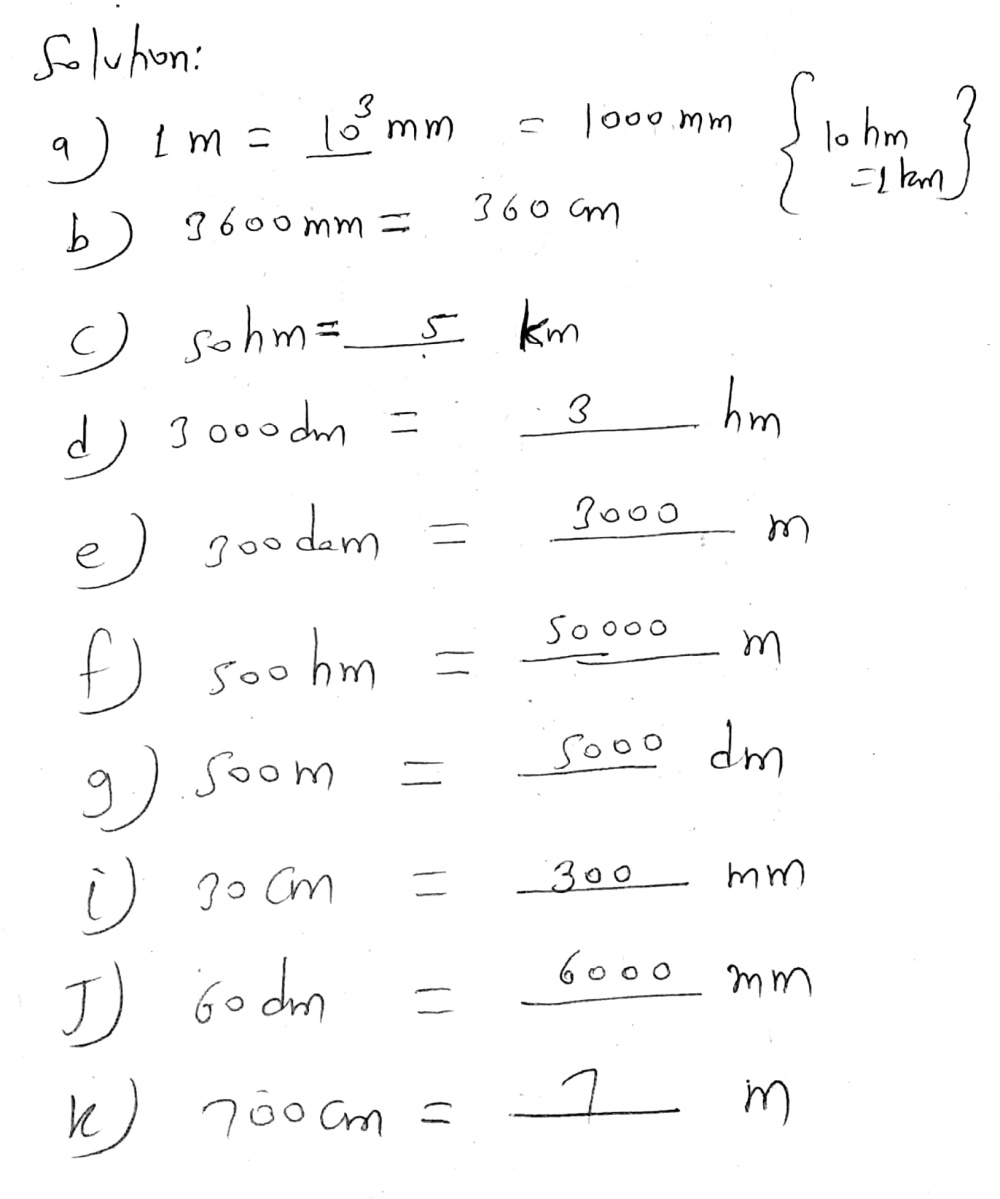 Solution:
a) 1 m = 10³ mm = 1000 mm {10 hm = 1 km}
b) 3600 mm = 360 cm
c) 50 hm = 5 km
d) 3000 dm = 3 hm
e) 300 dam = 3000 m
f) 500 hm = 50000 m
g) 500 m = 5000 dm
i) 30 cm = 300 mm
J) 60 dm = 6000 mm
k) 700 cm = 7 m